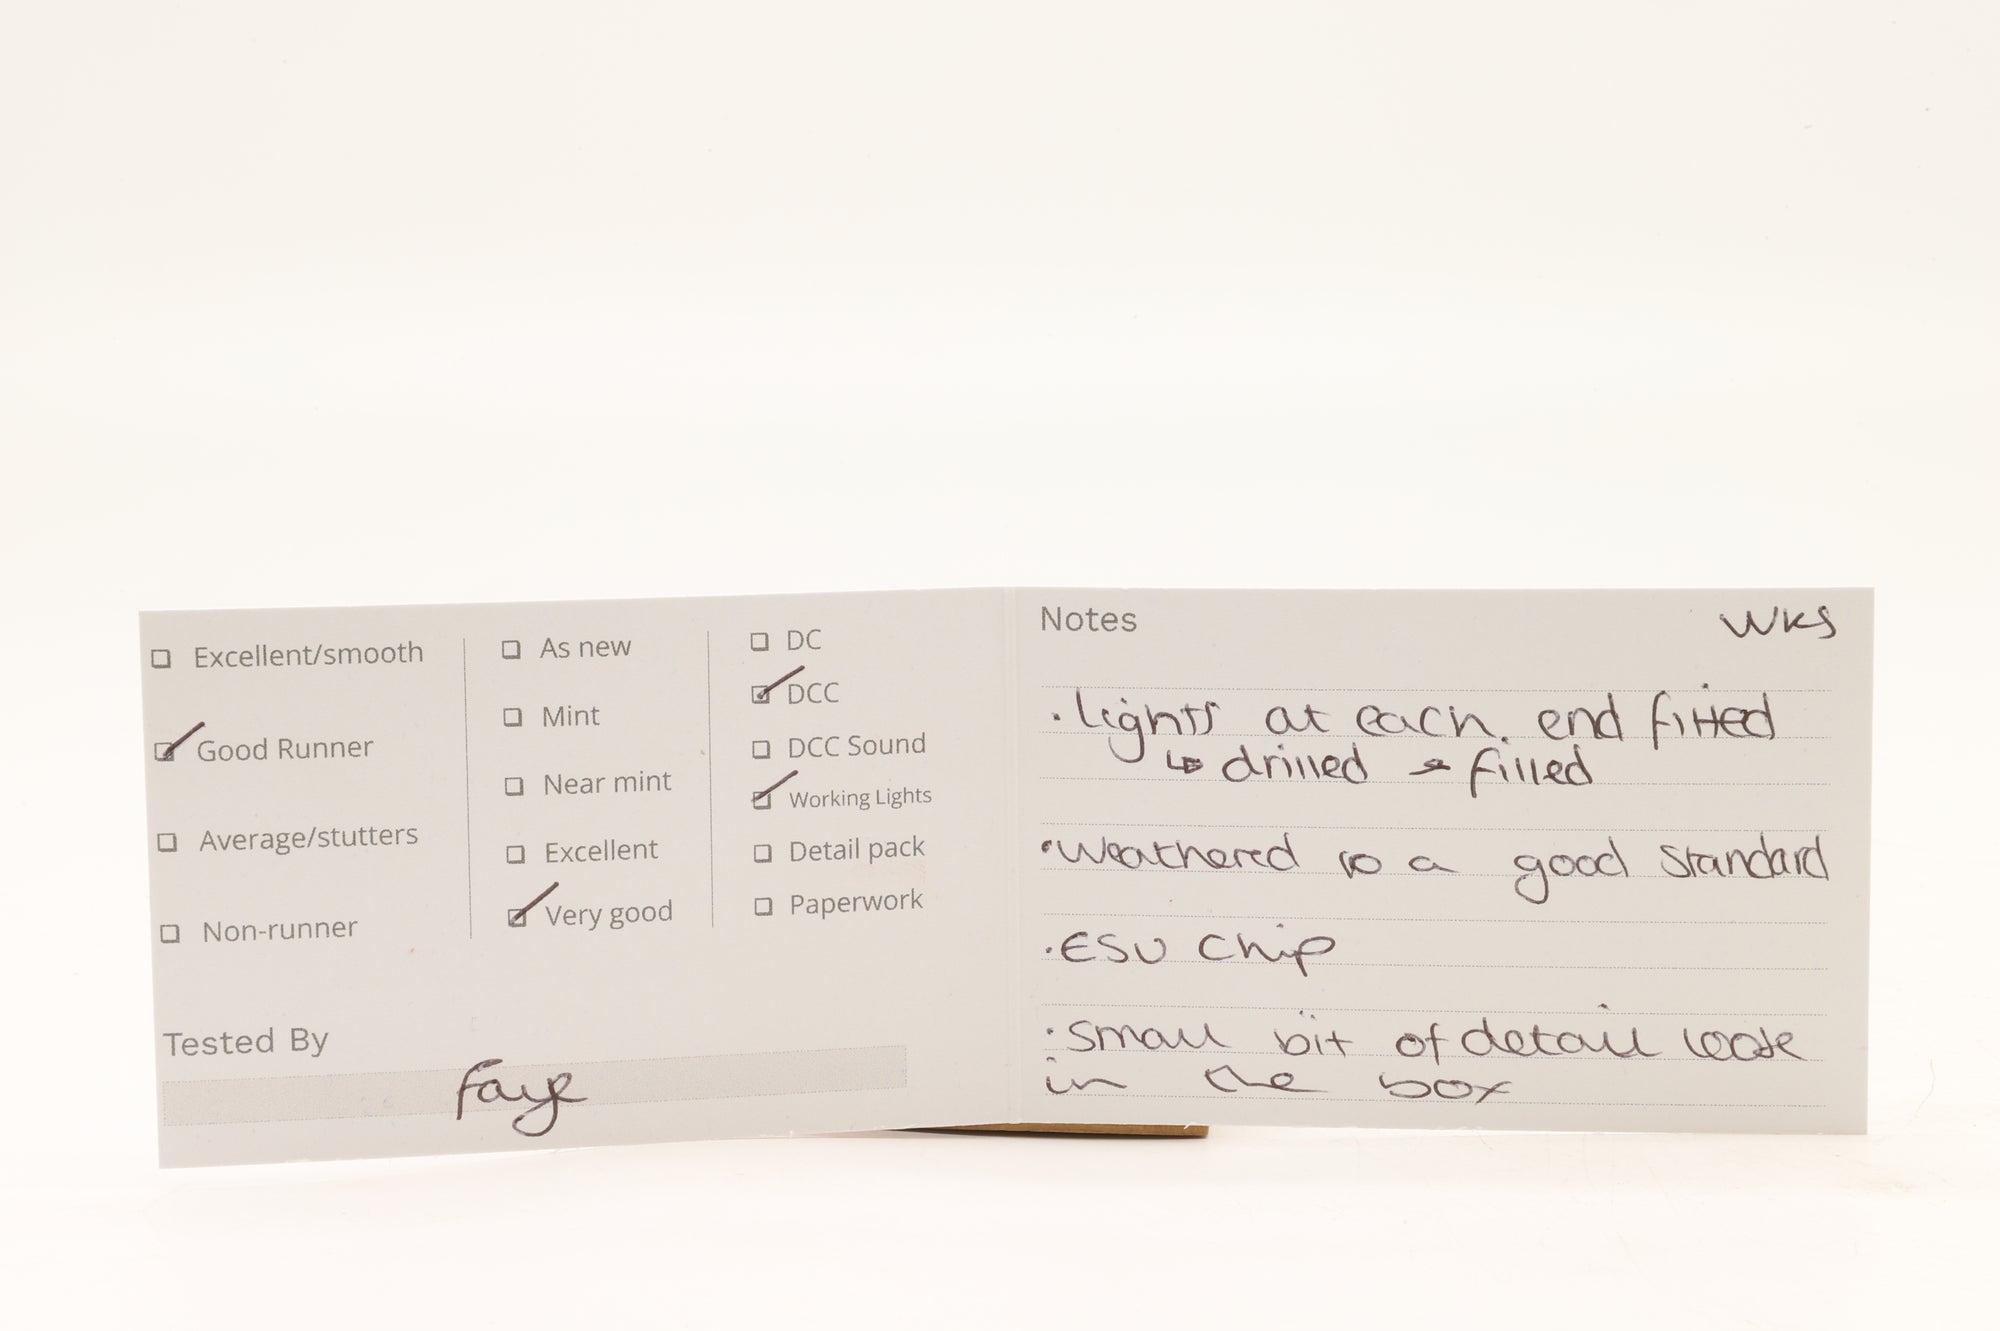 Excellent/smooth
Good Runner
Average/stutters
Non-runner
As new
Mint
Near mint
Excellent
Very good
DC
DCC
DCC Sound
Working Lights
Detail pack
Paperwork
Tested By
Faye
Notes
WKS
· Lights at each end fitted
↳ drilled → filled
· Weathered to a good standard
· ESU Chip
· Small bit of detail loose
in the box